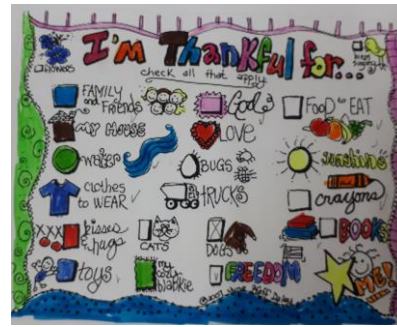 I'm Thankful for...
check all that apply
FLOWERS
FAMILY and Friends
God
FOOD to EAT
my House
LOVE
water
BUGS
sunshine
clothes to WEAR
TRUCKS
crayons
kisses & hugs
CATS
DOGS
BOOKS
toys
my cozy blankie
FREEDOM
ME!